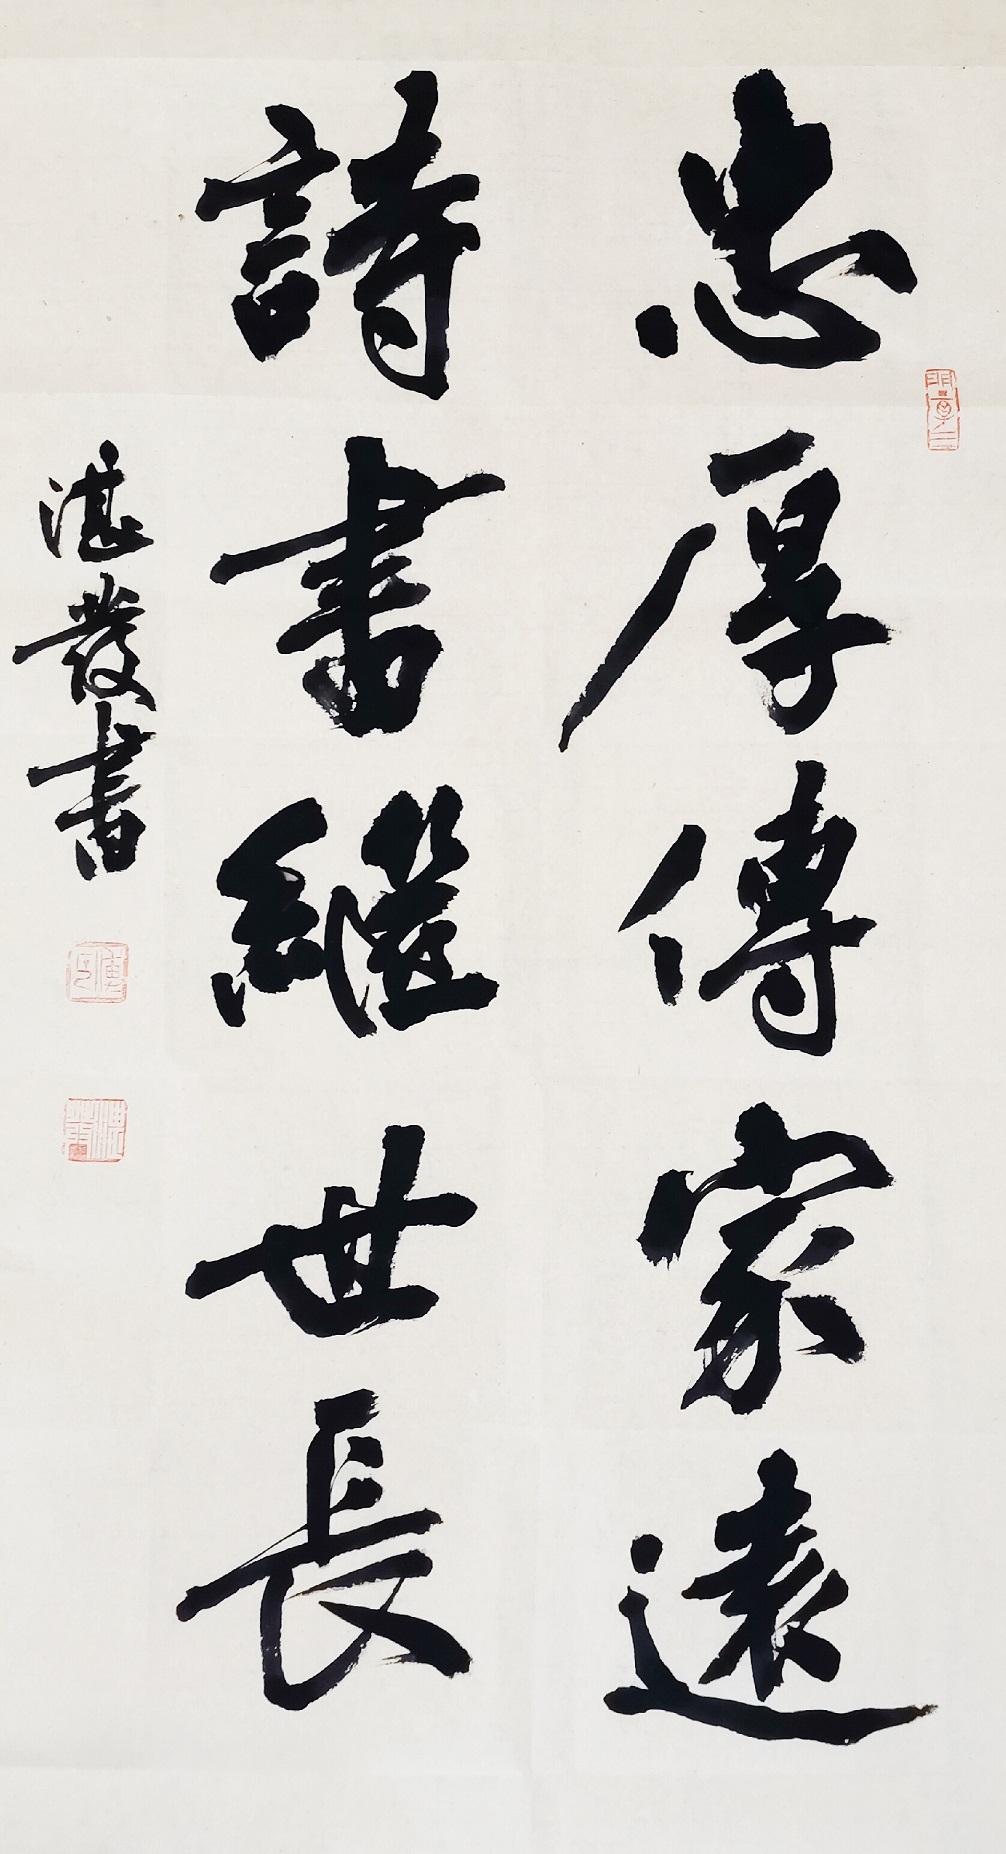 忠厚傳家遠
詩書繼世長
湛發書